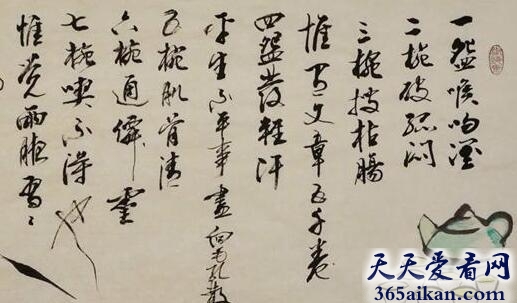 一盌喉吻潤
二椀破孤悶
三椀搜枯腸
惟有文章五千卷
四盌發輕汗
平生不平事盡向毛孔散
五椀肌骨清
六椀通僊靈
七椀喫不得也
惟覺兩腋習〻
天天爱看网
365aikan.com